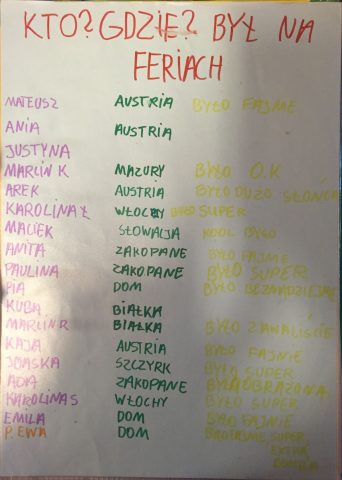 KTO? GDZIE? BYŁ NA
FERIACH
MATEUSZ AUSTRIA BYŁO FAJNIE
ANIA AUSTRIA
JUSTYNA
MARCIN K MAZURY BYŁO O.K
AREK AUSTRIA BYŁO DUŻO SŁOŃCA
KAROLINA Ł WŁOCHY BYŁO SUPER
MACIEK SŁOWACJA KOOL BYŁO
ANITA ZAKOPANE BYŁO FAJNIE
PAULINA ZAKOPANE BYŁO SUPER
PIA DOM BYŁO
KUBA BIAŁKA
MARCIN R BIAŁKA BYŁO ZAWALIŚCIE
KAJA AUSTRIA BYŁO FAJNIE
JOAŚKA SZCZYRK BYŁO SUPER
ADA ZAKOPANE
KAROLINA S WŁOCHY BYŁO SUPER
EMILA DOM BYŁO FAJNIE
P. EWA DOM SUPER,
EXTRA